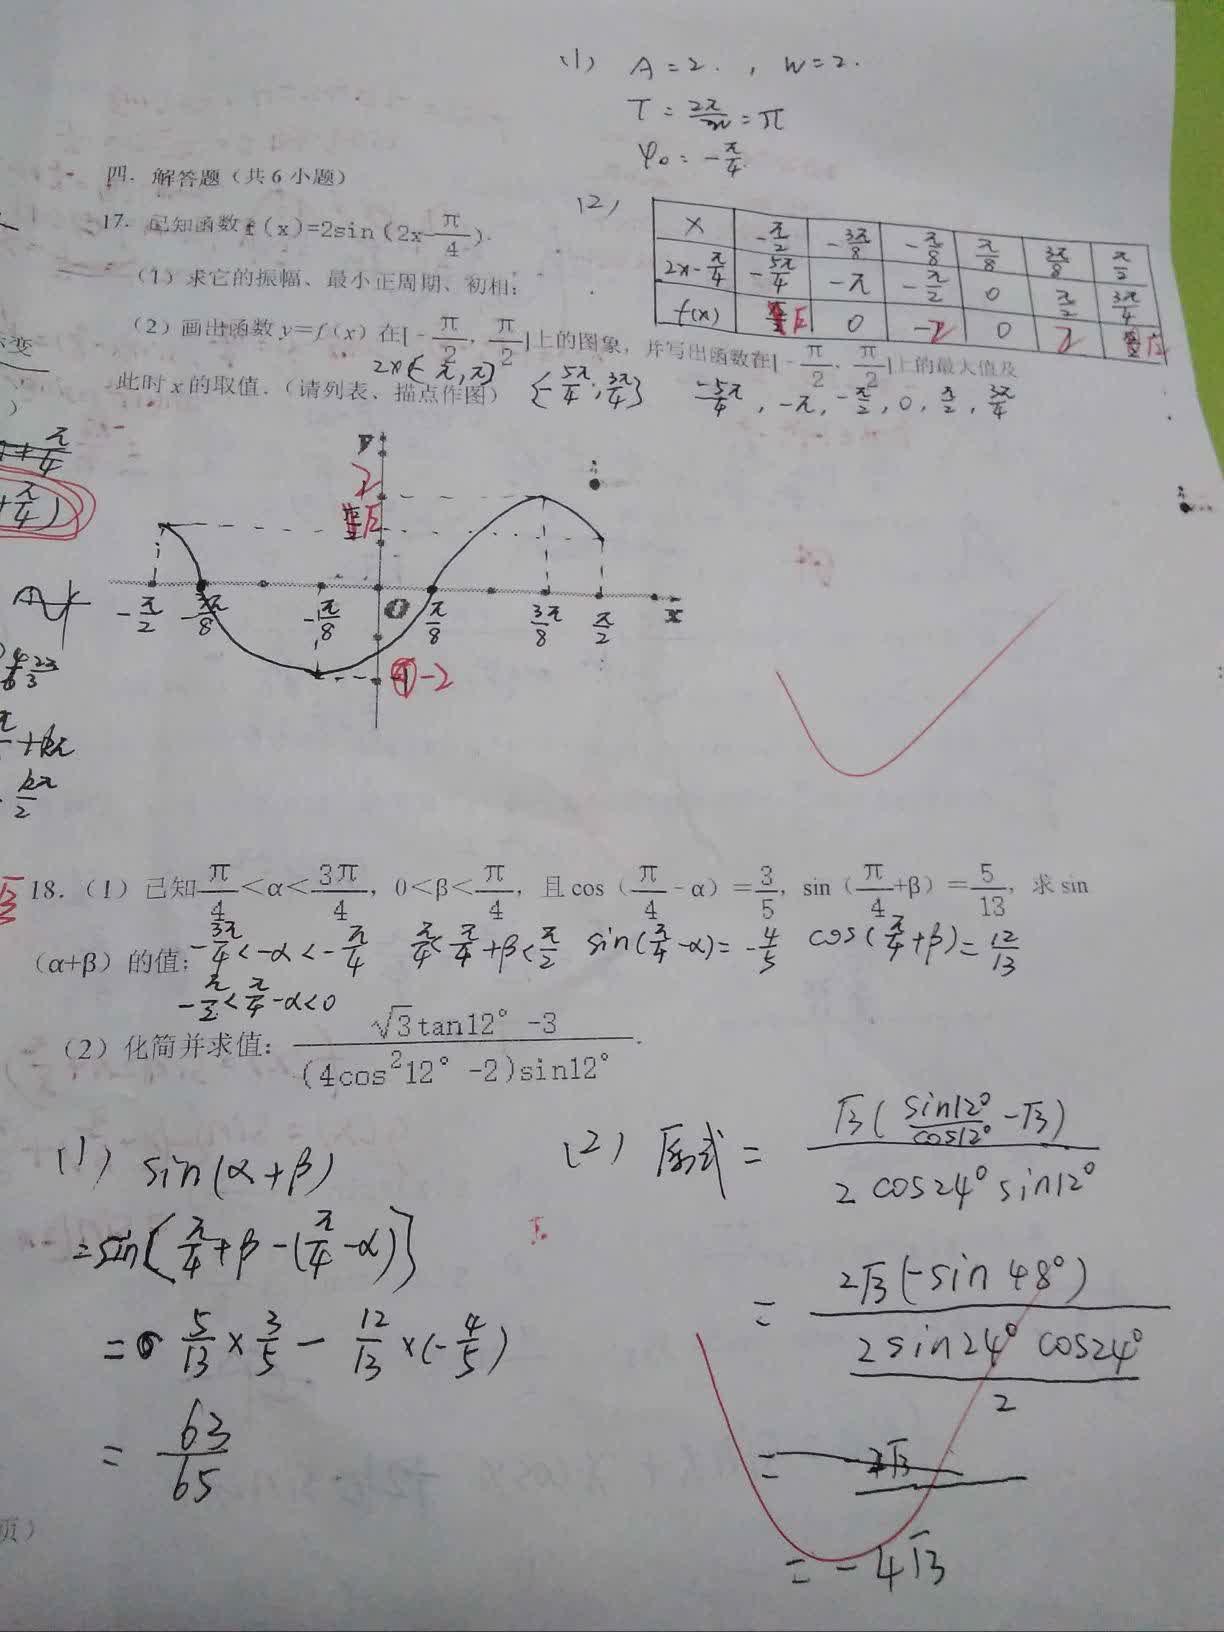 (1) A=2. , W=2.
T = 2π/w = π
φ₀ = -π/4.
四. 解答题（共6小题）
17. 已知函数f(x)=2sin（2x-π/4).
(1) 求它的振幅、最小正周期、初相;
(2) 画出函数y=f(x)在[-π/2, π/2]上的图象，并写出函数在[-π/2, π/2]上的最大值及
此时x的取值.（请列表、描点作图）
2x∈(-π, π)
{-5π/4, 3π/4}
-5π/4, -π, -π/2, 0, π/2, 3π/4
(2)
x -π/2 -3π/8 -π/8 π/8 3π/8 π/2
2x-π/4 -5π/4 -π -π/2 0 π/2 3π/4
f(x) √2 0 -2 0 2 √2
y
2
√2
-π/2 -3π/8 -π/8 O π/8 3π/8 π/2 x
-2
变
)
+π/4)
+kπ
kπ/2
18.（1）已知π/4<α<3π/4, 0<β<π/4, 且cos（π/4-α）=3/5, sin（π/4+β）=5/13, 求sin
（α+β）的值;
-3π/4<-α<-π/4 π/4<π/4+β<π/2 sin(π/4-α)=-4/5 cos(π/4+β)=12/13
-π/2<π/4-α<0
（2）化简并求值: (√3tan12°-3)/((4cos²12°-2)sin12°).
(1) sin(α+β)
=sin[π/4+β-(π/4-α)]
= 5/13×3/5 - 12/13×(-4/5)
= 63/65
(2) 原式 = √3(sin12°/cos12°-√3)/(2cos24°sin12°)
= 2√3(-sin48°)/(2sin24°cos24°/2)
= -4√3
页）